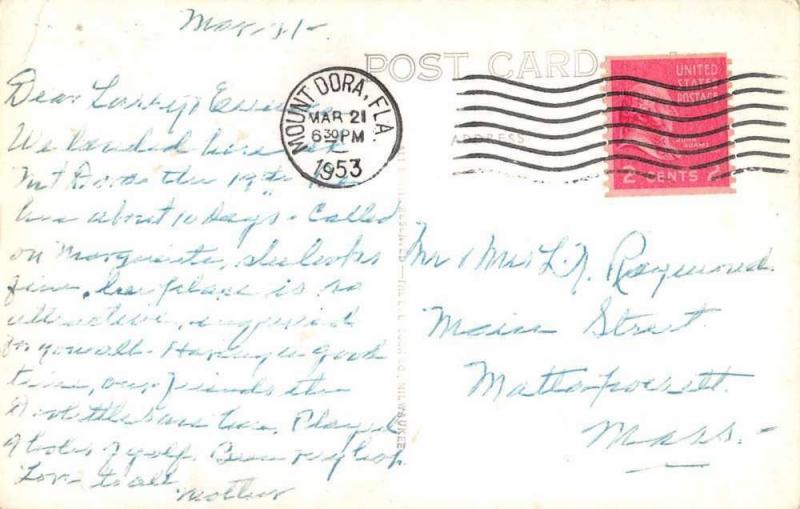 Mar. 21-
Dear Larry &
We landed here at
Mt Dora the 19th
here about 10 days. Called
on Marguerite, she looks
fine, her place is so
attractive,
for you all. Having a good
time, our friends the
are here. Played
9 holes of golf. Been very hot
Love to all
Mother
POST CARD
ADDRESS
MOUNT DORA, FLA.
MAR 21
6 30 PM
1953
UNITED
STATES
POSTAGE
JOHN
ADAMS
2 CENTS 2
Mr & Mrs L. N. Raymond.
Main Street
Mattapoisett.
Mass.-
MILWAUKEE